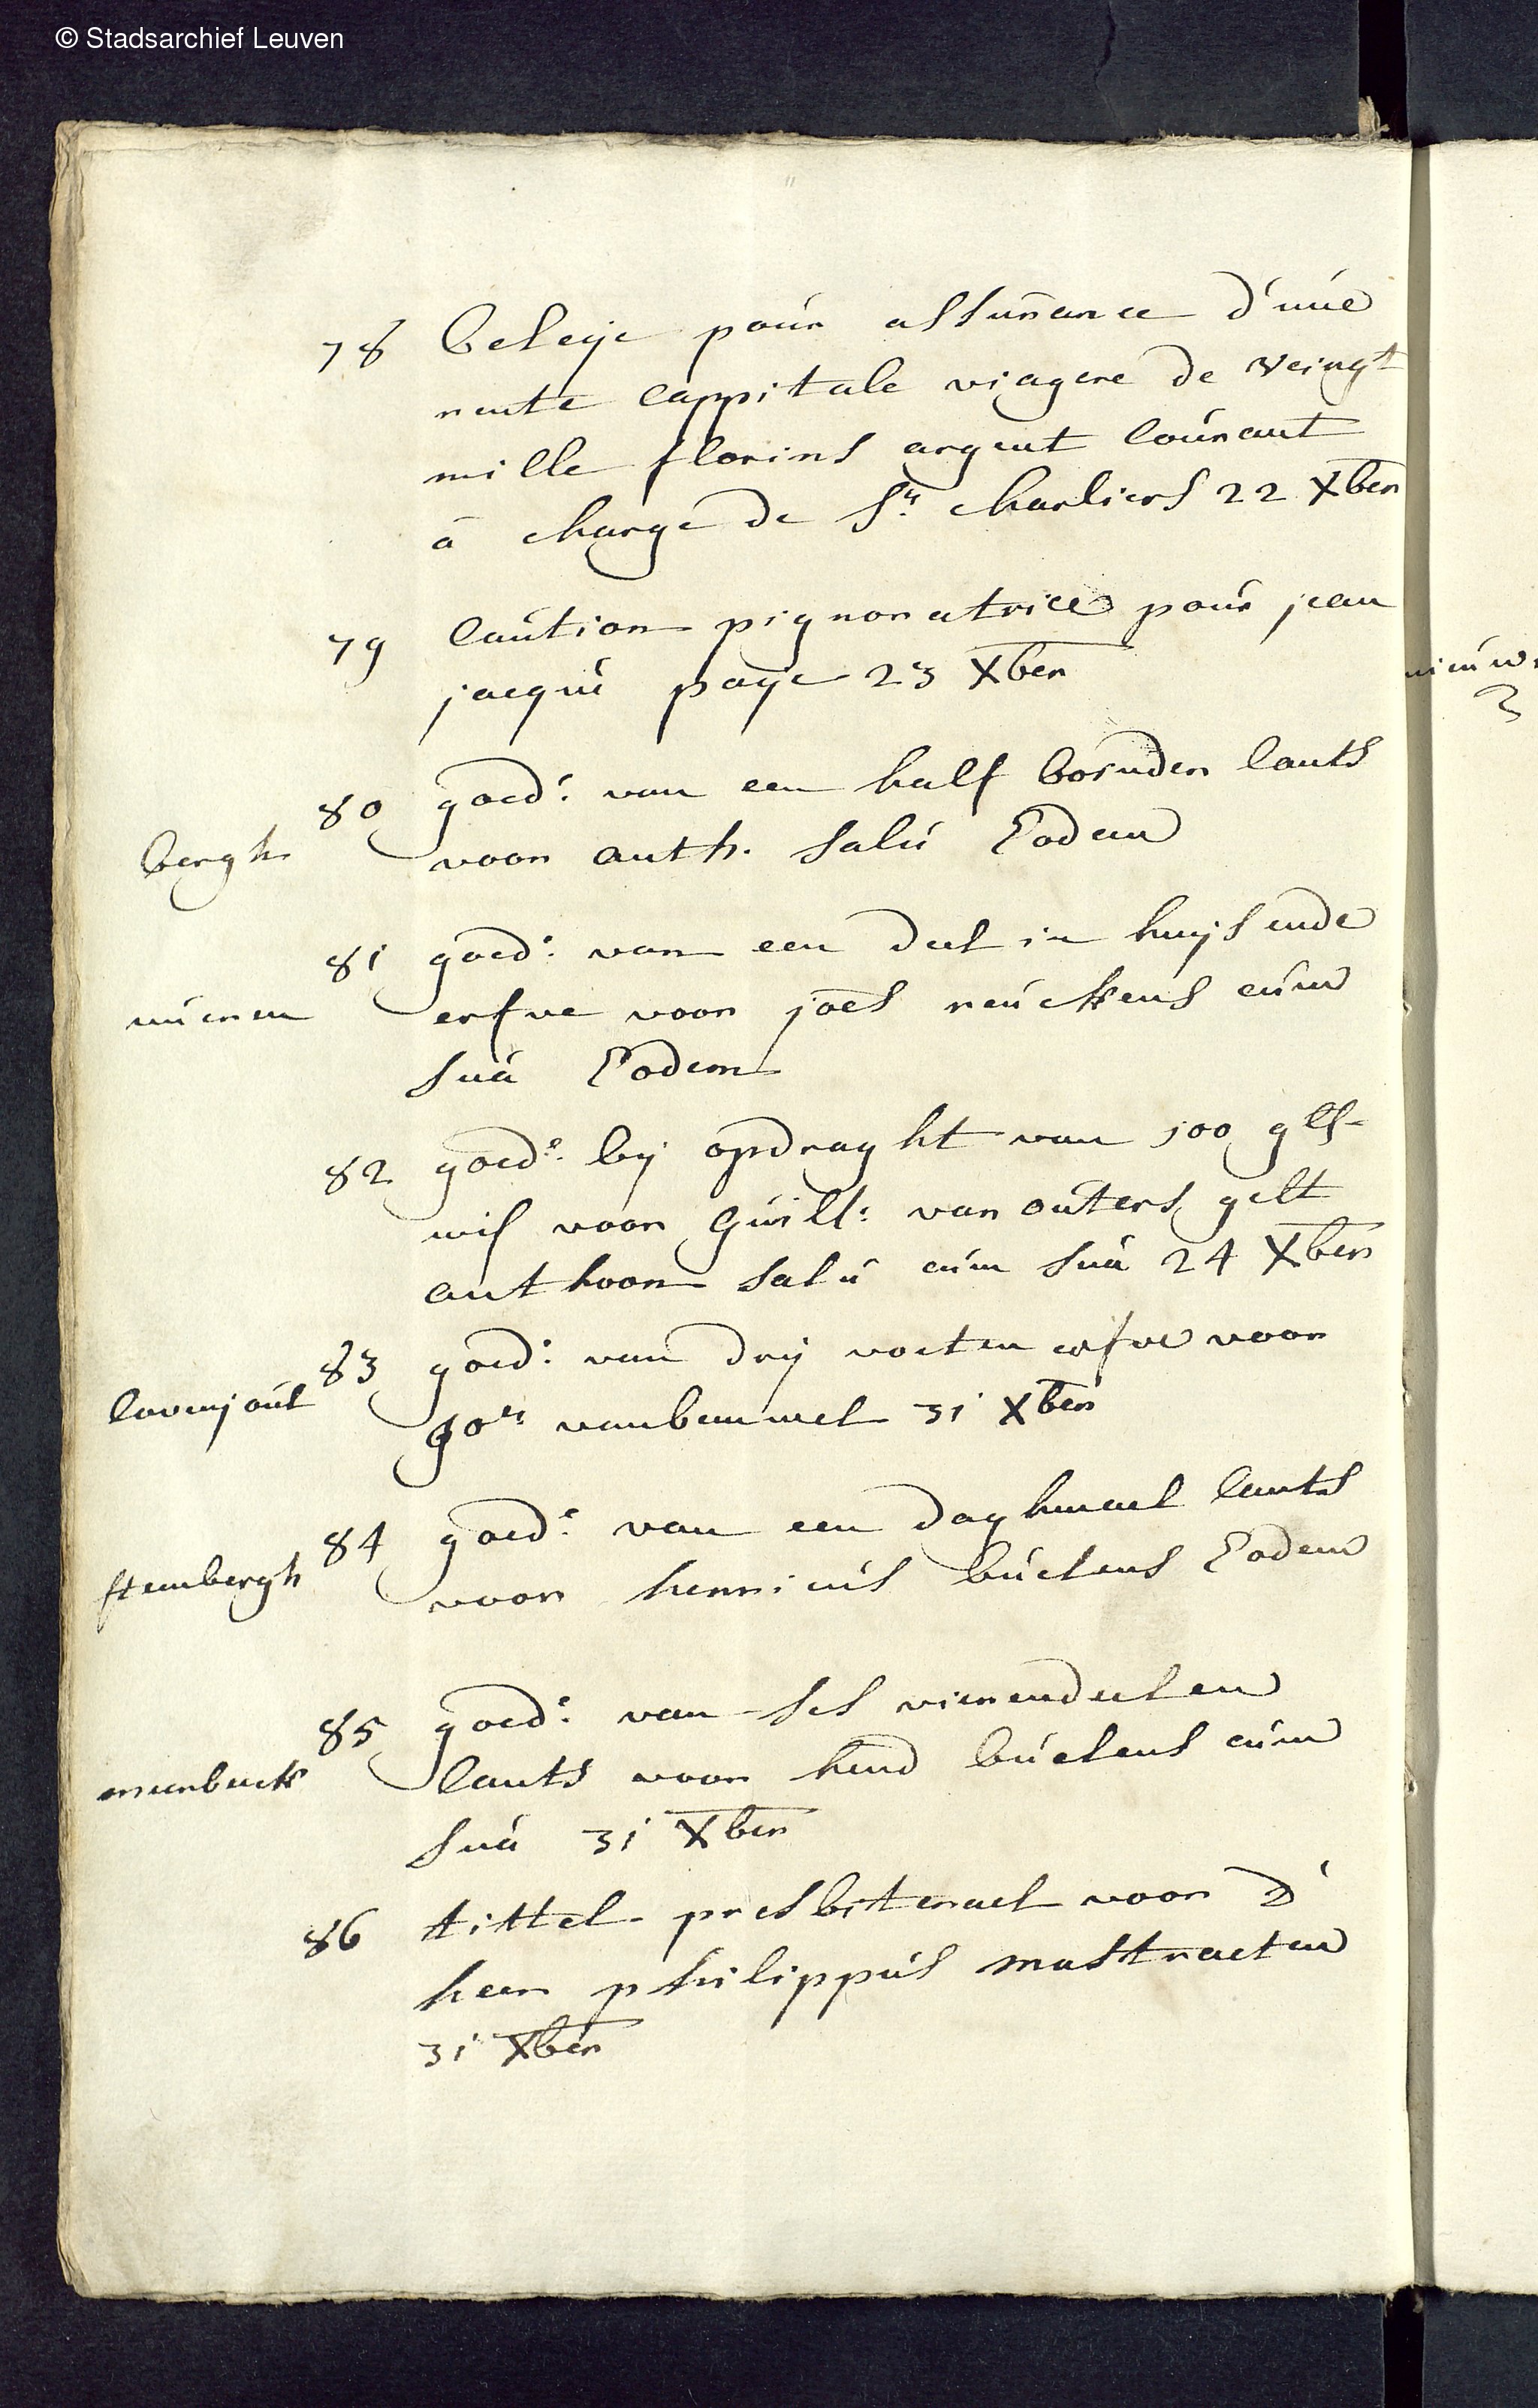 © Stadsarchief Leuven
78 beleije pour assurance d'une
rente cappitale viagere de veingt
mille florins argent courant
à charge de Sr. charliers 22 Xber
79 caution pignoratrice pour jean
jacque paye 23 Xber
80 goed: van een half boinder lants
bergh voor anth. salu Eodem
81 goed: van een deel in huijs ende
erfve voor joēs neuckens cum
sua Eodem
82 goed: bij opdraght van 500 gls
wis voor Guill: van outers gelt
anthoon salu cum sua 24 Xber
83 goed: van drij voeten erfve voor
lovenjoul gor vanbemmel 31 Xber
84 goed: van een daghmael lants
stembergh voor henricus buelens Eodem
85 goed: van ses vierendeelen
meerbeeck lants voor hend buelens cum
sua 31 Xber
86 tittel presbiterael voor d'
heer philippus mastraeten
31 Xber